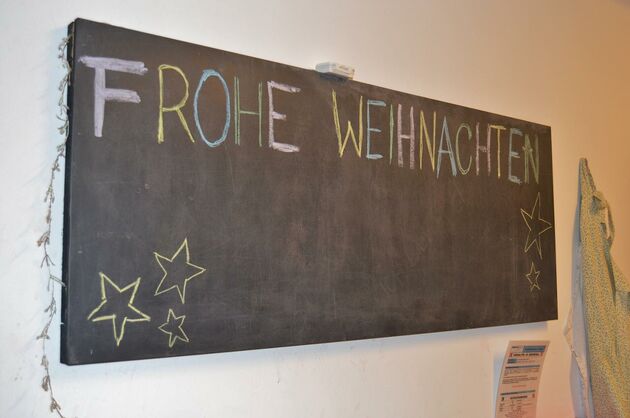 FROHE WEIHNACHTEN